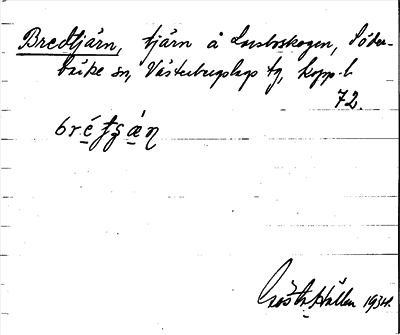 Bredtjärn, tjärn å Lorsboskogen, Söder-
bärke sn, Västerbergslags tg, Kopp. l.
72.
Gösta Hållen 1934.